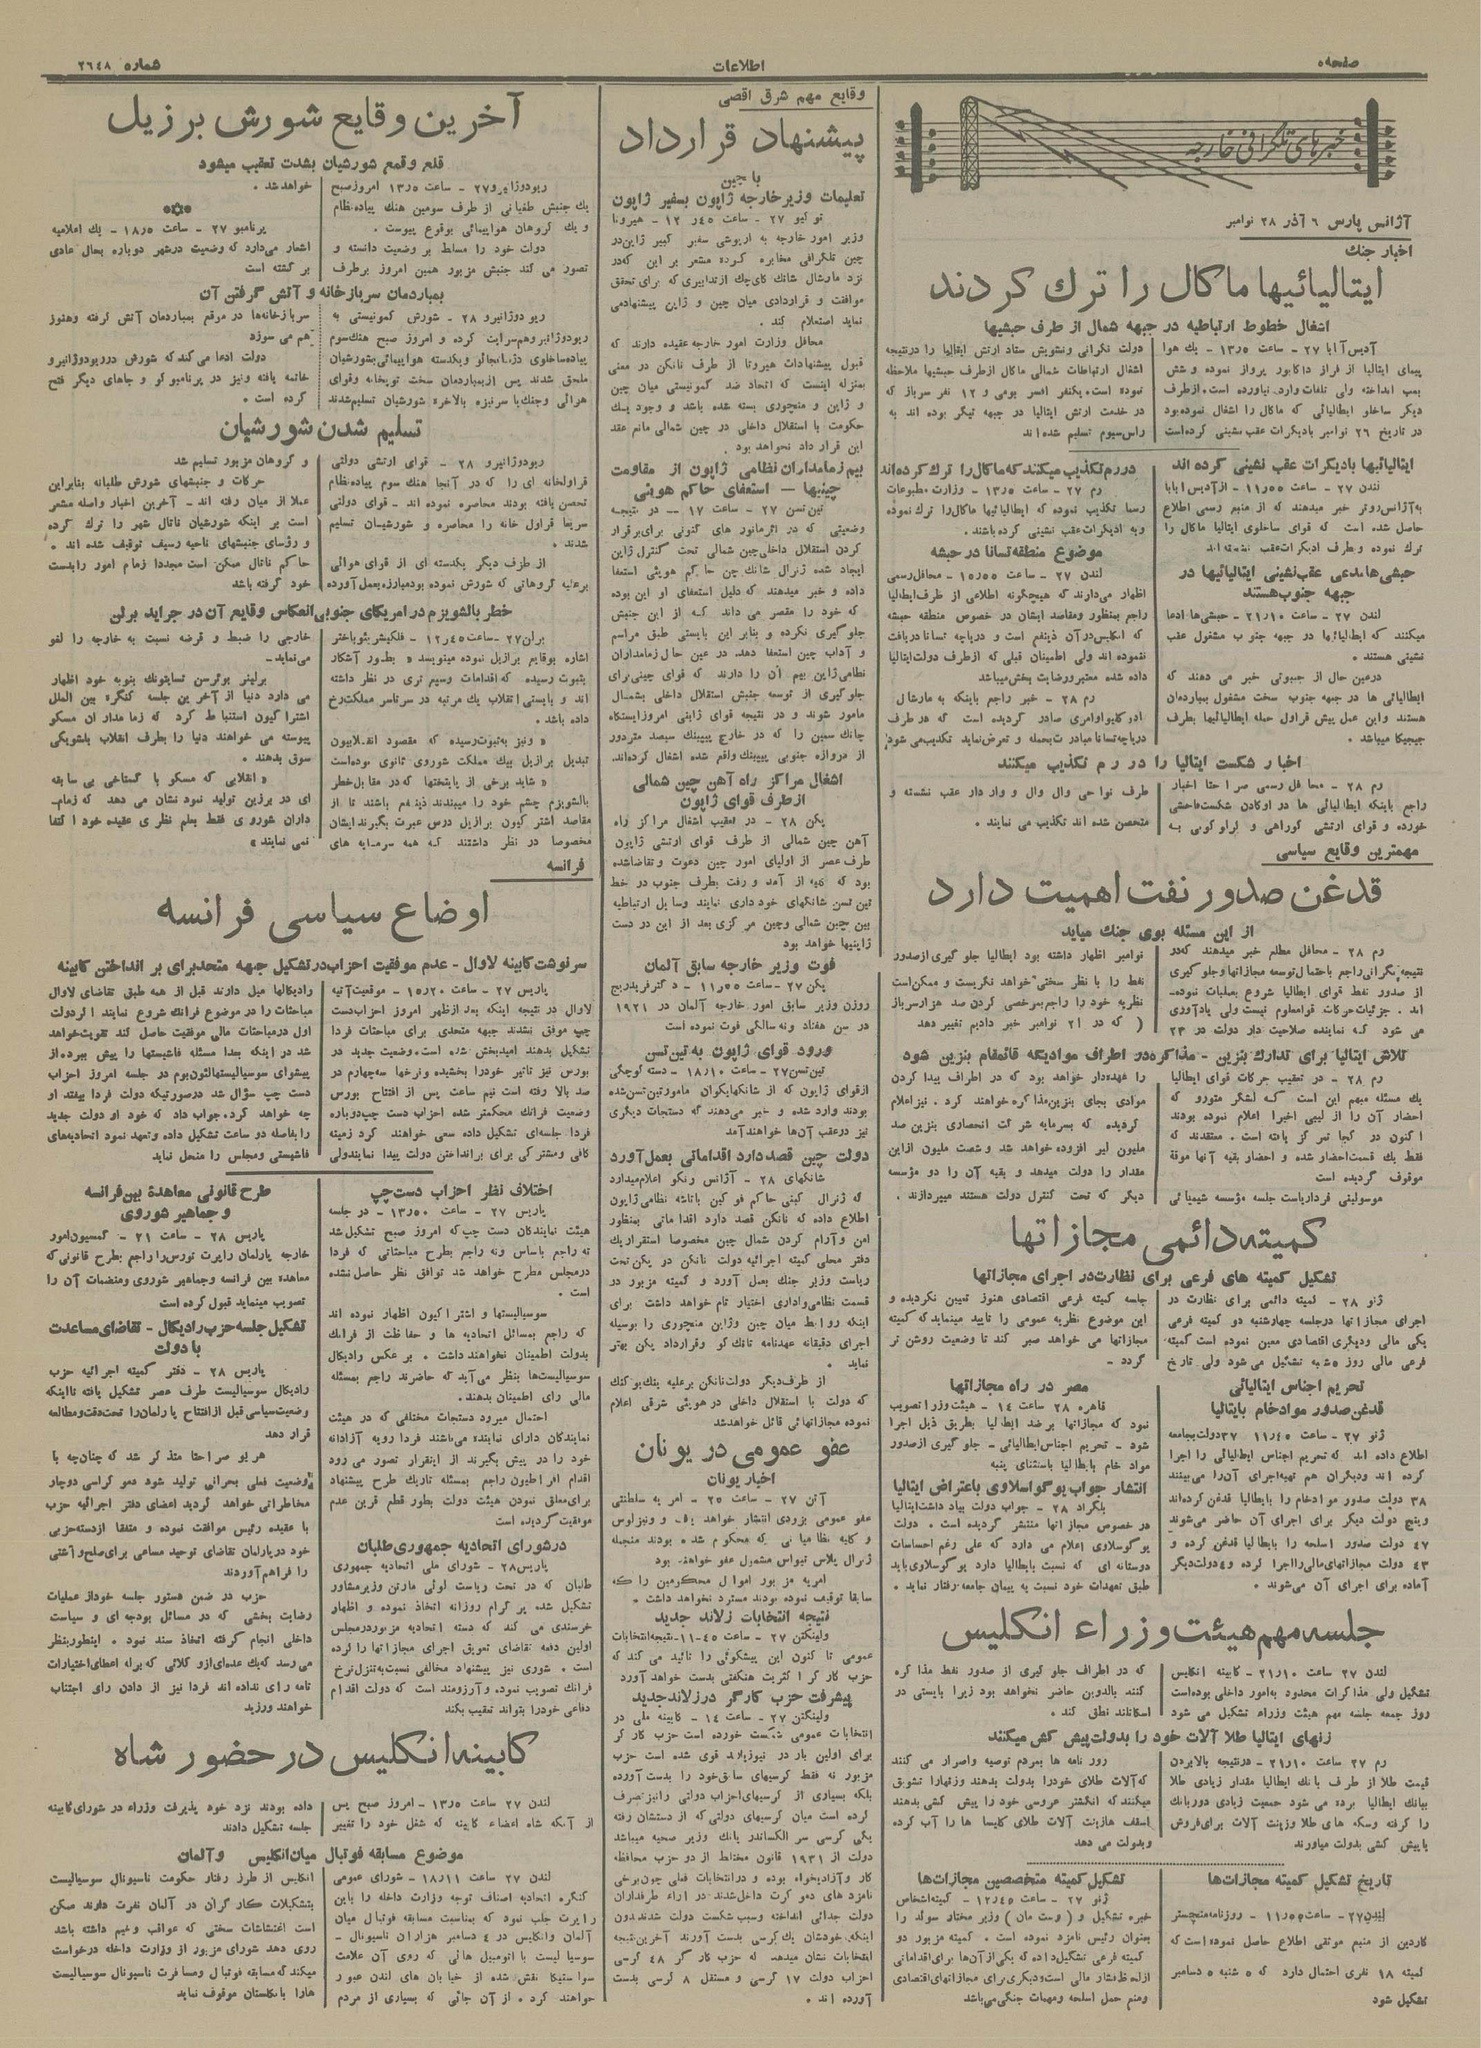 صفحه۵
اطلاعات
شماره ۲۶۴۸
خبرهای تلگرافی خارجه
آژانس پارس ۶ آذر ۲۸ نوامبر
اخبار جنك
ایتالیائیها ماکال را ترك کردند
اشغال خطوط ارتباطیه در جبهه شمال از طرف حبشیها
آدیس آبابا ۲۷ - ساعت ۱۳ر۵ - يك هوا
پیمای ایتالیا از فراز داکابور پرواز نموده و شش
بمب انداخته ولی تلفات وارد نیاورده است. از طرف
دیگر ساخلو ایطالیائی که ماکال را اشغال نموده بود
در تاریخ ۲۶ نوامبر بادیگرات عقب نشینی کرده است
دولت نگرانی و تشویش ستاد ارتش ایتالیا را در نتیجه
اشغال ارتباطات شمالی ماکال از طرف حبشیها ملاحظه
نموده است. یکنفر افسر بومی و ۱۲ نفر سرباز که
در خدمت ارتش ایتالیا در جبهه تیگر بوده اند به
راس سیوم تسلیم شده اند
ایتالیائیها بادیگرات عقب نشینی کرده اند
لندن ۲۷ - ساعت ۱۱ر۵۵ - از آدیس ابابا
به آژانس روتر خبر میدهند که از منبع رسمی اطلاع
حاصل شده است که قوای ساخلوی ایتالیا ماکال را
ترك نموده و طرف ادیگرات عقب نشسته اند
حبشی ها مدعی عقب نشینی ایتالیائیها در
جبهه جنوب هستند
لندن ۲۷ - ساعت ۲۱ر۱۰ - حبشی ها ادعا
میکنند که ایطالیائیها در جبهه جنوب مشغول عقب
نشینی هستند .
در عین حال از جیبوتی خبر می دهند که
ایطالیائی ها در جبهه جنوب سخت مشغول بمباردمان
هستند و این عمل پیش قراول حمله ایطالیائیها بطرف
جیجیکا میباشد .
در رم تکذیب میکنند که ماکال را ترك کرده اند
رم ۲۷ - ساعت ۱۳ر۵ - وزارت مطبوعات
رسما تکذیب نموده که ایطالیائیها ماکال را ترك نموده
و به ادیگرات عقب نشینی کرده باشند .
موضوع منطقه تسانا در حبشه
لندن ۲۷ - ساعت ۱۵ر۵۵ - محافل رسمی
اظهار می دارند که هیچگونه اطلاعی از طرف ایطالیا
راجع بمنظور و مقاصد ایشان در خصوص منطقه حبشه
که انگلیس در آن ذینفع است و دریاچه تسانا دریافت
ننموده اند ولی اطمینان قبلی که از طرف دولت ایتالیا
داده شده معتبر و رضایت بخش میباشد
رم ۲۸ - خبر راجع باینکه به مارشال
بادوگلیو اوامری صادر گردیده است که در طرف
دریاچه تسانا مبادرت بحمله و تعرض نماید تکذیب می شود
اخبار شکست ایتالیا را در رم تکذیب میکنند
رم ۲۸ - محافل رسمی صراحتا اخبار
راجع باینکه ایطالیائی ها در اوگادن شکست فاحشی
خورده و قوای ارتشی گوراهی و لوکوبی به
طرف نواحی وال وال و واردار عقب نشسته و
متحصن شده اند تکذیب می نمایند .
مهمترین وقایع سیاسی
قدغن صدور نفت اهمیت دارد
از این مسئله بوی جنك میاید
رم ۲۸ - محافل مطلع خبر میدهند که در
نتیجه نگرانی راجع باحتمال توسعه مجازاتها و جلو گیری
از صدور نفط قوای ایطالیا شروع بعملیات نموده
اند . جزئیات حرکات قوا معلوم نیست ولی یادآوری
می شود که نماینده صلاحیت دار دولت در ۲۳
نوامبر اظهار داشته بود ایطالیا جلو گیری از صدور
نفط را با نظر سختی خواهد نگریست و ممکن است
نظریه خود را راجع بمرخصی کردن صد هزار سرباز
( که در ۲۱ نوامبر خبر دادیم تغییر دهد
تلاش ایتالیا برای تدارك بنزین - مذاکره در اطراف موادیکه قائمقام بنزین شود
رم ۲۸ - در تعقیب حرکات قوای ایطالیا
يك مسئله مبهم این است که لشگر متورو که
احضار آن را از لیبی اخیرا اعلام نموده بودند
اکنون در کجا تمرکز یافته است . معتقدند که
فقط يك قسمت احضار شده و احضار بقیه آنها موقة
موقوف گردیده است
موسولینی فردا ریاست جلسه مؤسسه شیمیائی
را عهده دار خواهد بود که در اطراف پیدا کردن
موادی بجای بنزین مذاکره خواهند کرد . نیز اعلام
گردیده که بسرمایه شرکت انحصاری بنزین صد
ملیون لیر افزوده خواهد شد و شصت ملیون از این
مقدار را دولت میدهد و بقیه آن را دو مؤسسه
دیگر که تحت کنترل دولت هستند میپردازند .
کمیته دائمی مجازاتها
تشکیل کمیته های فرعی برای نظارت در اجرای مجازاتها
ژنو ۲۸ - کمیته دائمی برای نظارت در
اجرای مجازاتها در جلسه چهارشنبه دو کمیته فرعی
یکی مالی و دیگری اقتصادی معین نموده است کمیته
فرعی مالی روز ۵ شنبه تشکیل می شود ولی تاریخ
جلسه کمیته فرعی اقتصادی هنوز تعیین نگردیده و
این موضوع نظریه عمومی را تایید مینماید که کمیته
مجازاتها می خواهد صبر کند تا وضعیت روشن تر
گردد -
تحریم اجناس ایتالیائی
قدغن صدور مواد خام بایتالیا
ژنو ۲۷ - ساعت ۱۱ر۴۵ ۳۷ دولت بجامعه
اطلاع داده اند که تحریم اجناس ایطالیائی را اجرا
کرده اند و دیگران هم تهیه اجرای آن را می بینند
۳۸ دولت صدور مواد خام را بایطالیا قدغن کرده اند
و پنج دولت دیگر برای اجرای آن حاضر می شوند
۴۷ دولت صدور اسلحه را بایطالیا قدغن کرده و
۴۳ دولت مجازاتهای مالی را اجرا کرده و ۴ دولت دیگر
آماده برای اجرای آن می شوند .
مصر در راه مجازاتها
قاهره ۲۸ ساعت ۱۴ - هیئت وزرا تصویب
نمود که مجازاتها بر ضد ایطالیا بطریق ذیل اجرا
شود - تحریم اجناس ایطالیائی - جلو گیری از صدور
مواد خام بایطالیا باستثنای پنبه
انتشار جواب یوگوسلاوی باعتراض ایتالیا
بلگراد ۲۸ - جواب دولت بیاد داشت ایتالیا
در خصوص مجازاتها منتشر گردیده است . دولت
یوگوسلاوی اعلام می دارد که علی رغم احساسات
دوستانه ای که نسبت بایطالیا دارد یوگوسلاوی باید
طبق تعهدات خود نسبت به پیمان جامعه رفتار نماید .
جلسه مهم هیئت وزراء انگلیس
لندن ۲۷ ساعت ۲۱ر۱۰ - کابینه انگلیس
تشکیل ولی مذاکرات محدود به امور داخلی بوده است
روز جمعه جلسه مهم هیئت وزراء تشکیل می شود
که در اطراف جلو گیری از صدور نفط مذاکره
کنند بالدوین حاضر نخواهد بود زیرا بایستی در
اسکاتلند نطق کند .
زنهای ایتالیا طلا آلات خود را بدولت پیش کش میکنند
رم ۲۷ ساعت ۲۱ر۱۰ - در نتیجه بالا بردن
قیمت طلا از طرف بانك ایطالیا مقدار زیادی طلا
ببانك ایطالیا برده می شود جمعیت زیادی دور بانك
را گرفته و سکه های طلا و زینت آلات برای فروش
یا پیش کشی بدولت میاورند
روزنامه ها بمردم توصیه و اصرار می کنند
که آلات طلای خود را بدولت بدهند و زنها را تشویق
میکنند که انگشتر عروسی خود را پیش کشی بدهند
اسقف ها زینت آلات طلای کلیسا ها را آب کرده
و بدولت می دهد
تاریخ تشکیل کمیته مجازات ها
لندن ۲۷ - ساعت ۱۱ر۵۵ - روزنامه منچستر
گاردین از منبع موثقی اطلاع حاصل نموده است که
کمیته ۱۸ نفری احتمال دارد که ۵ شنبه ۵ دسامبر
تشکیل شود
تشکیل کمیته متخصصین مجازات ها
ژنو ۲۷ - ساعت ۱۲ر۴۵ - کمیته اشخاص
خبره تشکیل و ( وست مان ) وزیر مختار سوئد را
بعنوان رئیس نامزد نموده است . کمیته مزبور دو
کمیته فرعی تشکیل داده که یکی از آن ها برای اقداماتی
از لحاظ فشار مالی است و دیگری برای مجازاتهای اقتصادی
و منع حمل اسلحه و مهمات جنگی می باشد
وقایع مهم شرق اقصی
پیشنهاد قرارداد
با چین
تعلیمات وزیر خارجه ژاپون بسفیر ژاپون
توکیو ۲۷ - ساعت ۱۲ر۴۵ - هیروتا
وزیر امور خارجه به اریوشی سفیر کبیر ژاپن در
چین تلگرافی مخابره کرده مشعر بر این که در
نزد مارشال شانك کای چك از تدابیری که برای تحقق
موافقت و قراردادی میان چین و ژاپن پیشنهاد می
نماید استعلام کند .
محافل وزارت امور خارجه عقیده دارند که
قبول پیشنهادات هیروتا از طرف نانکن در معنی
بمنزله اینست که اتحاد ضد کمونیستی میان چین
و ژاپن و منچوری بسته شده باشد و وجود يك
حکومت با استقلال داخلی در چین شمالی مانع عقد
این قرار داد نخواهد بود .
بیم زمامداران نظامی ژاپون از مقاومت
چینیها - استعفای حاکم هوپئی
تین تسن ۲۷ - ساعت ۱۷ - در نتیجه
وضعیتی که در اثر مانور های کنونی برای برقرار
کردن استقلال داخلی چین شمالی تحت کنترل ژاپن
ایجاد شده ژنرال شانك چن حاکم هوپئی استعفا
داده و خبر میدهند که دلیل استعفای او این بوده
که خود را مقصر می داند که از این جنبش
جلو گیری نکرده و بنابر این بایستی طبق مراسم
و آداب چین استعفا دهد. در عین حال زمامداران
نظامی ژاپن بیم آن را دارند که قوای چینی برای
جلو گیری از توسعه جنبش استقلال داخلی بشمال
مامور شوند و در نتیجه قوای ژاپنی امروز ایستگاه
چانك سین را که در خارج پیپینك سیصد متر دور
از دروازه جنوبی پیپینك واقع شده اشغال کرده اند.
اشغال مراکز راه آهن چین شمالی
از طرف قوای ژاپون
پکن ۲۸ - در تعقیب اشغال مراکز راه
آهن چین شمالی از طرف قوای ارتشی ژاپون
طرف عصر از اولیای امور چین دعوت و تقاضا شده
بود که کلیه از آمد و رفت بطرف جنوب در خط
تین تسن شانگهای خود داری نمایند وسایل ارتباطیه
بین چین شمالی و چین مرکزی بعد از این در دست
ژاپنیها خواهد بود
فوت وزیر خارجه سابق آلمان
پکن ۲۷ - ساعت ۱۱ر۵۵ - دکتر فریدریخ
روزن وزیر سابق امور خارجه آلمان در ۱۹۲۱
در سن هفتاد و نه سالگی فوت نموده است
ورود قوای ژاپون به تین تسن
تین تسن ۲۷ - ساعت ۱۸ر۱۰ - دسته کوچکی
از قوای ژاپون که از شانکهایکوان مامور تین تسن شده
بودند وارد شده و خبر می دهند که دستجات دیگری
نیز در عقب آن ها خواهند آمد
دولت چین قصد دارد اقداماتی بعمل آورد
شانگهای ۲۸ - آژانس رنگو اعلام میدارد
که ژنرال کینی حاکم فو کین با تاشه نظامی ژاپون
اطلاع داده که نانکن قصد دارد اقداماتی بمنظور
امن و آرام کردن شمال چین مخصوصا استقرار يك
دفتر محلی کمیته اجرائیه دولت نانکن در پکن تحت
ریاست وزیر جنك بعمل آورد و کمیته مزبور در
قسمت نظامی و اداری اختیار تام خواهد داشت برای
اینکه روابط میان چین و ژاپن و منچوری را بوسیله
اجرای دقیقانه عهدنامه تانك کو و قرارداد پکن بهتر
نماید .
از طرف دیگر دولت نانکن بر علیه ینك یو کنك
که دولت با استقلال داخلی در هوپئی شرقی اعلام
نموده مجازاتهائی قائل خواهد شد
عفو عمومی در یونان
اخبار یونان
آتن ۲۷ - ساعت ۲۵ - امریه سلطنتی
عفو عمومی بزودی انتشار خواهد یافت و ونیزلوس
و کلیه نظامیانی که محکوم شده بودند منجمله
ژنرال پلاس تیراس مشمول عفو خواهند بود
امریه مزبور اموال محکومین را که
سابقا توقیف نموده بودند مسترد نخواهد داشت .
نتیجه انتخابات زلاند جدید
ولینگتن ۲۷ - ساعت ۱۱ر۴۵ - نتیجه انتخابات
عمومی تا کنون این پیشگوئی را تائید می کند که
حزب کارگر اکثریت هنگفتی بدست خواهد آورد
پیشرفت حزب کارگر در زلاند جدید
ولینگتن ۲۷ - ساعت ۱۴ - کابینه ملی در
انتخابات عمومی شکست خورده است حزب کارگر
برای اولین بار در نیوزیلاند قوی شده است حزب
مزبور نه فقط کرسیهای سابق خود را بدست آورده
بلکه بسیاری از کرسیهای احزاب دولتی را نیز تصرف
کرده است میان کرسیهای دولتی که از دستشان رفته
یکی کرسی سر الکساندر یانك وزیر صحیه میباشد
دولت از ۱۹۳۱ قانون مختلط از دو حزب محافظه
کار و آزادیخواه بوده و در انتخابات فعلی چون برخی
نامزد های دمو کرت داخل شدند در آراء طرفداران
دولت جدائی انداخته و سبب شکست دولت شدند بدون
اینکه خودشان يك کرسی بدست آورند آخرین نتیجه
انتخابات نشان میدهد که حزب کار گر ۴۸ کرسی
احزاب دولت ۱۷ کرسی و مستقل ۸ کرسی بدست
آورده اند .
آخرین وقایع شورش برزیل
قلع و قمع شورشیان بشدت تعقیب میشود
ریودوژانیرو ۲۷ - ساعت ۱۳ر۵ امروز صبح
يك جنبش طغیانی از طرف سومین هنك پیاده نظام
و يك گروهان هواپیمائی بوقوع پیوست .
دولت خود را مسلط بر وضعیت دانسته و
تصور می کند جنبش مزبور همین امروز برطرف
خواهد شد .
پرنامبو ۲۷ - ساعت ۱۸ر۵ - يك اعلامیه
اشعار می دارد که وضعیت در شهر دوباره بحال عادی
بر گشته است
بمباردمان سربازخانه و آتش گرفتن آن
ریودوژانیرو ۲۸ - شورش کمونیستی به
ریودوژانیرو هم سرایت کرده و امروز صبح هنك سوم
پیاده ساخلوی دژ پانجائو و یکدسته هواپیمائی بشورشیان
ملحق شدند پس از بمباردمان سخت توپخانه و قوای
هوائی و جنك با سرنیزه بالاخره شورشیان تسلیم شدند
سربازخانه ها در موقع بمباردمان آتش گرفته و هنوز
هم می سوزد
دولت ادعا می کند که شورش در ریودوژانیرو
خاتمه یافته و نیز در پرنامبوکو و جاهای دیگر فتح
کرده است .
تسلیم شدن شورشیان
ریودوژانیرو ۲۸ - قوای ارتشی دولتی
قراولخانه ای را که در آنجا هنك سوم پیاده نظام
تحصن یافته بودند محاصره نموده اند - قوای دولتی
سریعا قراول خانه را محاصره و شورشیان تسلیم
شدند .
از طرف دیگر یکدسته ای از قوای هوائی
بر علیه گروهانی که شورش نموده بود مبارزه بعمل آورده
و گروهان مزبور تسلیم شد
حرکات و جنبشهای شورش طلبانه بنابراین
عملا از میان رفته اند - آخرین اخبار واصله مشعر
است بر اینکه شورشیان ناتال شهر را ترك کرده
و رؤسای جنبشهای ناحیه رسیف توقیف شده اند .
حاکم ناتال ممکن است مجددا زمام امور را بدست
خود گرفته باشد
خطر بالشویزم در امریکای جنوبی انعکاس وقایع آن در جراید برلن
برلن ۲۷ - ساعت ۱۲ر۴۵ - فلکیشر بئوباختر
اشاره بوقایع برازیل نموده مینویسد « بطور آشکار
بثبوت رسیده که اقدامات وسیع تری در نظر داشته
اند و بایستی انقلاب يك مرتبه در سرتاسر مملکت رخ
داده باشد .
« و نیز به ثبوت رسیده که مقصود انقلابیون
تبدیل برازیل بيك مملکت شوروی ثانوی بوده است
« شاید برخی از پایتختها که در مقابل خطر
بالشویزم چشم خود را میبندند ذینفع باشند تا از
مقاصد اشتراکیون برازیل درس عبرت بگیرند ایشان
مخصوصا در نظر داشتند که همه سرمایه های
خارجی را ضبط و قرضه نسبت به خارجه را لغو
می نماید -
برلینر بوئرسن تسایتونك بنوبه خود اظهار
می دارد دنیا از آخرین جلسه کنگره بین الملل
اشتراکیون استنباط کرد که زمامداران مسکو
پیوسته می خواهند دنیا را بطرف انقلاب بلشویکی
سوق بدهند .
« انقلابی که مسکو با گستاخی بی سابقه
ای در برزیل تولید نمود نشان می دهد که زمام-
داران شوروی فقط بعلم نظری عقیده خود اکتفا
نمی نمایند »
فرانسه
اوضاع سیاسی فرانسه
سرنوشت کابینه لاوال - عدم موفقیت احزاب در تشکیل جبهه متحد برای بر انداختن کابینه
پاریس ۲۷ - ساعت ۱۵ر۲۰ - موقعیت آتیه
لاوال در نتیجه اینکه بعد از ظهر امروز احزاب دست
چپ موفق نشدند جبهه متحدی برای مباحثات فردا
تشکیل بدهند امید بخش شده است. وضعیت جدید در
بورس نیز تاثیر خود را بخشیده و نرخها سه چهارم در
صد بالا رفته است نیم ساعت پس از افتتاح بورس
وضعیت فرانك محکمتر شده احزاب دست چپ دوباره
فردا جلسه ای تشکیل داده سعی خواهند کرد زمینه
کافی و مشترکی برای برانداختن دولت پیدا نمایند ولی
رادیکالها میل دارند قبل از همه طبق تقاضای لاوال
مباحثات را در موضوع فرانك شروع نمایند اگر دولت
اول در مباحثات مالی موفقیت حاصل کند تقویت خواهد
شد در اینکه بعدا مسئله فاشیستها را پیش ببرد از
پیشوای سوسیالیستها لئون بوم در جلسه امروز احزاب
دست چپ سؤال شد در صورتیکه دولت فردا بیفتد او
چه خواهد کرد. جواب داد که خود او دولت جدید
را بفاصله دو ساعت تشکیل داده و تعهد نمود اتحادیه های
فاشیستی و مجلس را منحل نماید
اختلاف نظر احزاب دست چپ
پاریس ۲۷ - ساعت ۱۳ر۵۰ - در جلسه
هیئت نمایندگان دست چپ که امروز صبح تشکیل شد
نه راجع باساس و نه راجع بطرح مباحثاتی که فردا
در مجلس مطرح خواهد شد توافق نظر حاصل نشده
است .
سوسیالیستها و اشتراکیون اظهار نموده اند
که راجع بمسائل اتحادیه ها و حفاظت از فرانك
بدولت اطمینان نخواهند داشت . بر عکس رادیکال
سوسیالیست ها بنظر می آید که حاضرند راجع بمسئله
مالی رای اطمینان بدهند.
احتمال میرود دستجات مختلفی که در هیئت
نمایندگان دارای نماینده می باشند فردا رویه آزادانه
خود را در پیش بگیرند از اینقرار تصور می رود
اقدام افراطیون راجع بمسئله تاريك طرح پیشنهاد
برای معلق نمودن هیئت دولت بطور قطع قرین عدم
موفقیت گردیده است
در شورای اتحادیه جمهوری طلبان
پاریس ۲۸ - شورای ملی اتحادیه جمهوری
طلبان که در تحت ریاست لوئی مارتن وزیر مشاور
تشکیل شده پروگرام روزانه اتخاذ نموده و اظهار
خرسندی می کند که دسته اتحادیه مزبور در مجلس
اولین دفعه تقاضای تعویق اجرای مجازاتها را کرده
است . شوری نیز پیشنهاد مخالفی نسبت به تنزل نرخ
فرانك تصویب نموده و آرزومند است که دولت اقدام
دفاعی خود را بتواند تعقیب بکند
طرح قانونی معاهده بین فرانسه
و جماهیر شوروی
پاریس ۲۸ - ساعت ۲۱ - کمسیون امور
خارجه پارلمان راپرت تورس را راجع بطرح قانونی که
معاهده بین فرانسه و جماهیر شوروی و منضمات آن را
تصویب مینماید قبول کرده است
تشکیل جلسه حزب رادیکال - تقاضای مساعدت
با دولت
پاریس ۲۸ - دفتر کمیته اجرائیه حزب
رادیکال سوسیالیست طرف عصر تشکیل یافته تا اینکه
وضعیت سیاسی قبل از افتتاح پارلمان را تحت دقت و مطالعه
قرار دهد
هریو صراحتا متذکر شد که چنان چه با
وضعیت فعلی بحرانی تولید شود دمو کراسی دوچار
مخاطراتی خواهد گردید اعضای دفتر اجرائیه حزب
با عقیده رئیس موافقت نموده و متفقا از دسته حزبی
خود در پارلمان تقاضای توحید مساعی برای صلح و آشتی
را فراهم آوردند
حزب در ضمن دستور جلسه خود از عملیات
رضایت بخشی که در مسائل بودجه ای و سیاست
داخلی انجام گرفته اتخاذ سند نمود . اینطور بنظر
می رسد که يك عده ای از وکلائی که برله اعطای اختیارات
تامه رای نداده اند فردا نیز از دادن رای اجتناب
خواهند ورزید
کابینه انگلیس در حضور شاه
لندن ۲۷ ساعت ۱۳ر۵ - امروز صبح پس
از آنکه شاه اعضاء کابینه که شغل خود را تغییر
داده بودند نزد خود پذیرفت وزراء در شورای کابینه
جلسه تشکیل دادند
موضوع مسابقه فوتبال میان انگلیس و آلمان
لندن ۲۷ ساعت ۱۸ر۱۱ - شورای عمومی
کنگره اتحادیه اصناف توجه وزارت داخله را باین
راپرت جلب نمود که بمناسبت مسابقه فوتبال میان
آلمان و انگلیس در ۴ دسامبر هزاران ناسیونال -
سوسیالیست با اتومبیل هائی که روی آن علامت
سواستیکا نقش شده از خیابان های لندن عبور
خواهند کرد . از آن جائی که بسیاری از مردم
انگلیس از طرز رفتار حکومت ناسیونال سوسیالیست
بتشکیلات کارگران در آلمان نفرت دارند ممکن
است اغتشاشات سختی که عواقب وخیم داشته باشد
روی دهد شورای مزبور از وزارت داخله درخواست
میکند که مسابقه فوتبال و مسافرت ناسیونال سوسیالیست
هارا بانگلستان موقوف نماید